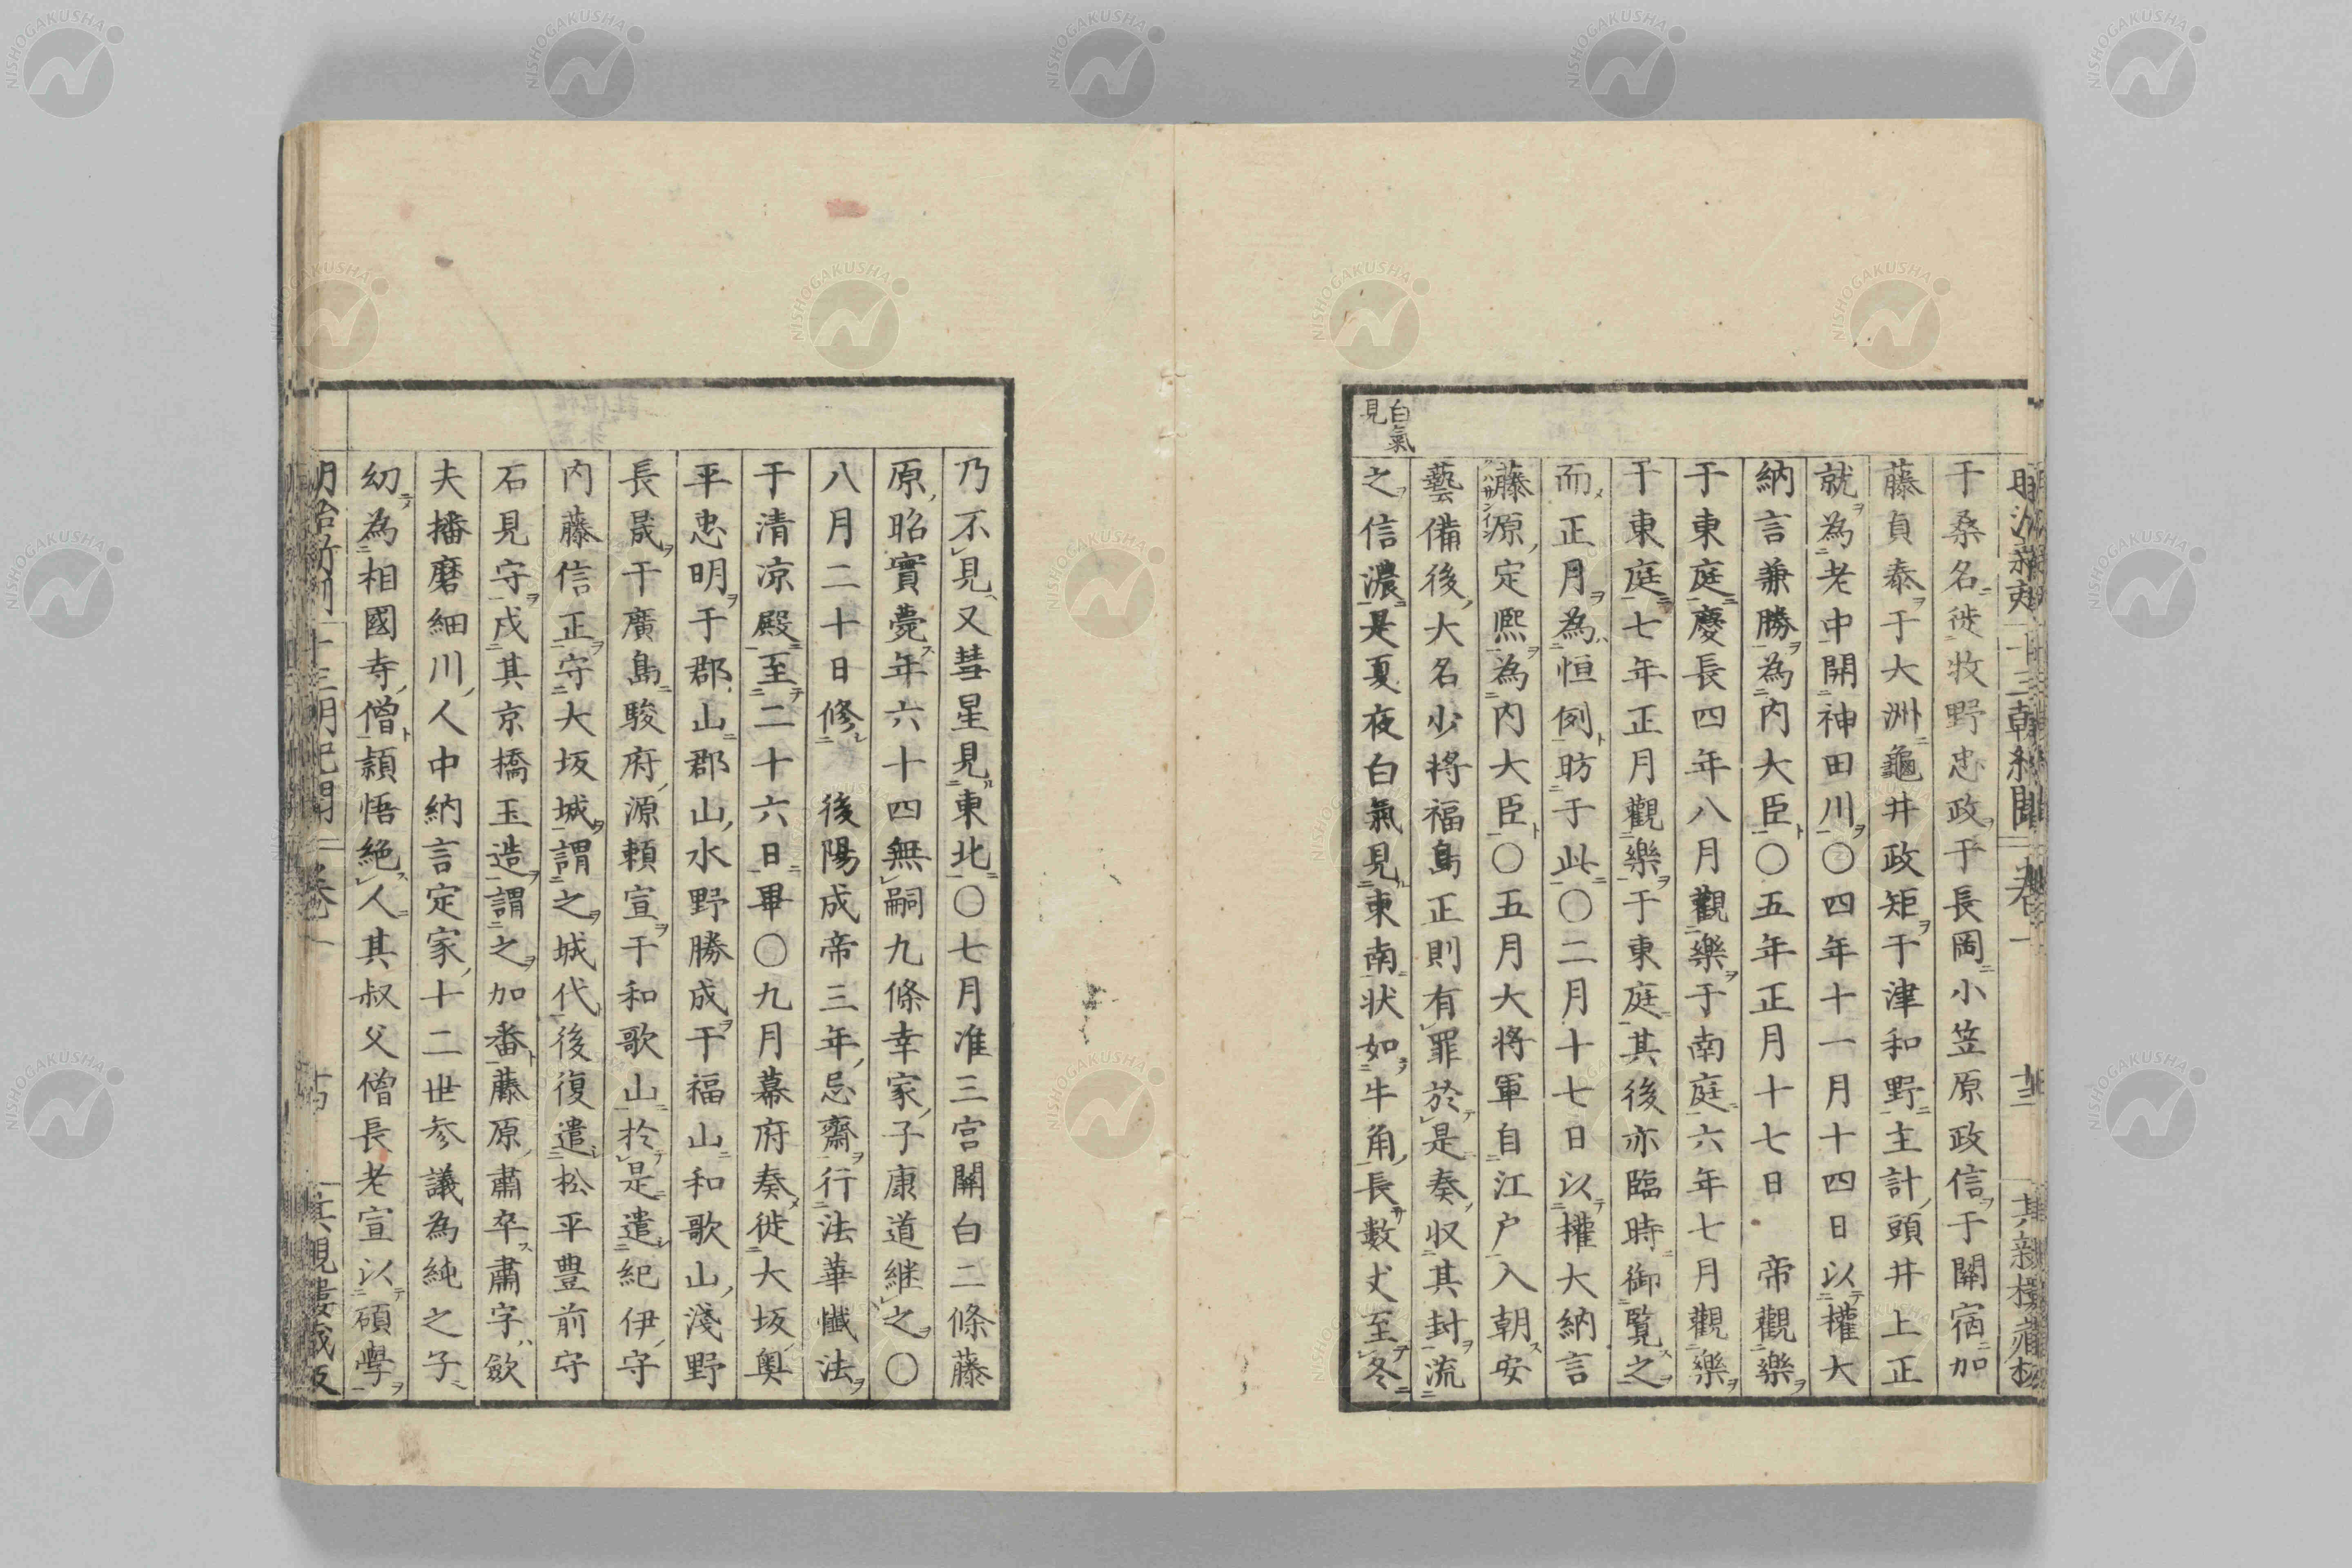 于桑名徙牧野忠政于長岡小笠原政信于關宿加
藤貞泰于大洲龜井政矩于津和野主計頭井上正
就為老中開神田川〇四年十一月十四日以權大
納言兼勝為內大臣〇五年正月十七日　帝觀樂
于東庭慶長四年八月觀樂于南庭六年七月觀樂
于東庭七年正月觀樂于東庭其後亦臨時御覽之
而正月為恒例昉于此〇二月十七日以權大納言
藤原定熈為內大臣〇五月大將軍自江戶入朝安
藝備後大名少將福島正則有罪於是奏收其封流
之信濃是夏夜白氣見東南狀如牛角長數丈至冬
白氣
見
乃不見又彗星見東北〇七月准三宮關白二條藤
原昭實薨年六十四無嗣九條幸家子康道継之〇
八月二十日修　後陽成帝三年忌齋行法華懺法
于清凉殿至二十六日畢〇九月幕府奏徙大坂奥
平忠明于郡山郡山水野勝成于福山和歌山淺野
長晟于廣島駿府源賴宣于和歌山於是遣紀伊守
內藤信正守大坂城謂之城代後復遣松平豊前守
石見守戍其京橋玉造謂之加番藤原肅卒肅字歛
夫播磨細川人中納言定家十二世参議為純之子
幼為相國寺僧頴悟絶人其叔父僧長老宣以碩學
NISHOGAKUSHA